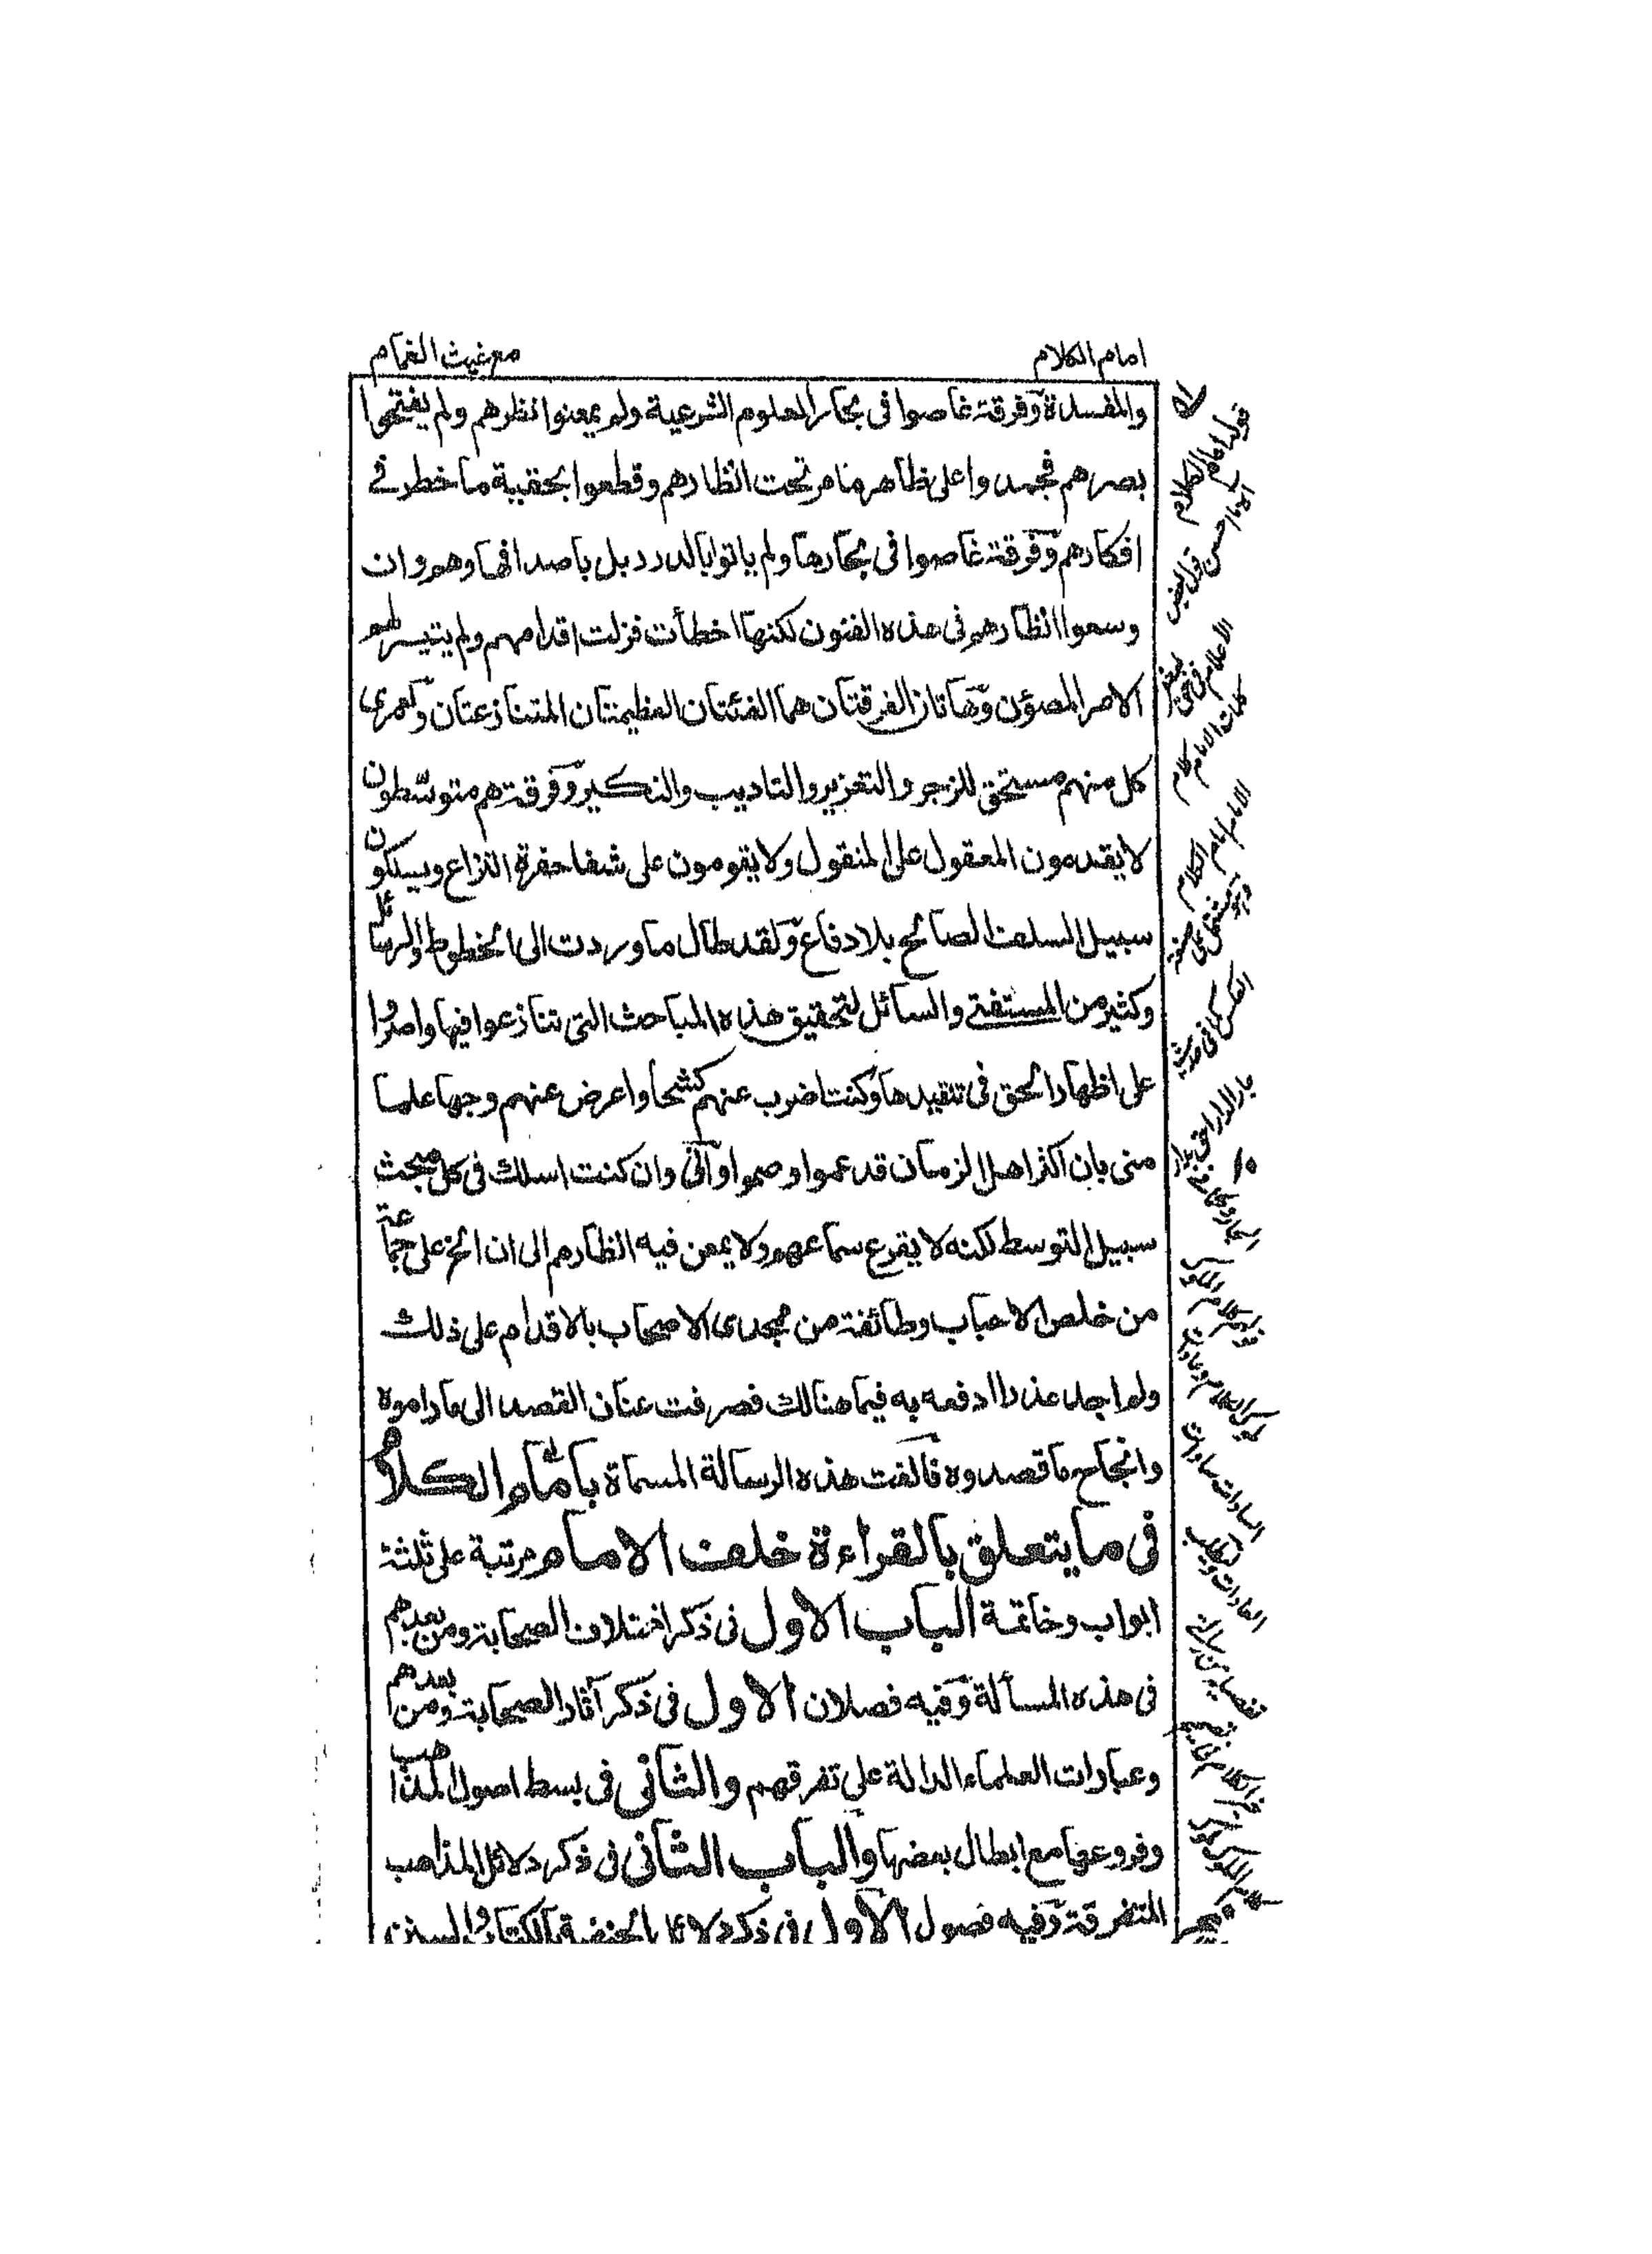 امام الكلام
مع غيث الغمام
والمفسدة وفرقة غاصوا فى بحار العلوم الشرعية ولم يمعنوا نظرهم ولم يفتحوا
بصرهم فجمدوا على ظاهر ما مر تحت انظارهم وقطعوا بحقية ما خطر فى
افكارهم وفرقة غاصوا فى بحارها ولم ياتوا بالدرر بل باصدافها وهم وان
وسعوا انظارهم فى هذه الفنون لكنها اخطأت فزلت اقدامهم ولم يتيسر لهم
الامر المصؤن وهاتان الفرقتان هما الفئتان العظيمتان المتنازعتان ولعمرى
كل منهم مستحق للزجر والتعزير والتاديب والنكير وفرقة هم متوسّطون
لا يقدمون المعقول على المنقول ولا يقومون على شفا حفرة النزاع ويسلكون
سبيل السلف الصالح بلا دفاع ولقد طال ما وردت الى الخطوط والرسائل
وكثير من المستفتى والسائل لتحقيق هذه المباحث التى تنازعوا فيها واصروا
على اظهار الحق فى تنقيدها وكنت اضرب عنهم كشحا واعرض عنهم وجها علما
منى بان اكثر اهل الزمان قد عموا وصموا وانى وان كنت اسلك فى كل مبحث
سبيل التوسط لكنه لا يقرع سماعهم ولا يمعن فيه انظارهم الى ان الح على جماعة
من خلص الاحباب وطائفة من مجدى الاصحاب بالاقدام على ذلك
ولم اجد عذرا ادفعه به فيما هنالك فصرفت عنان القصد الى ما راموه
وانجاح ما قصدوه فالفت هذه الرسالة المسماة بامام الكلام
فى ما يتعلق بالقراءة خلف الامام مرتبة على ثلثة
ابواب وخاتمة الباب الاول فى ذكر اختلاف الصحابة ومن بعدهم
فى هذه المسألة وفيه فصلان الاول فى ذكر آثار الصحابة ومن بعدهم
وعبارات العلماء الدالة على تفرقهم والثانى فى بسط اصول المذاهب
وفروعها مع ابطال بعضها والباب الثانى فى ذكر دلائل المذاهب
المتفرقة وفيه فصول الاول فى ذكر دلائل الحنفية بالكتاب والسنة
قوله امام الكلام